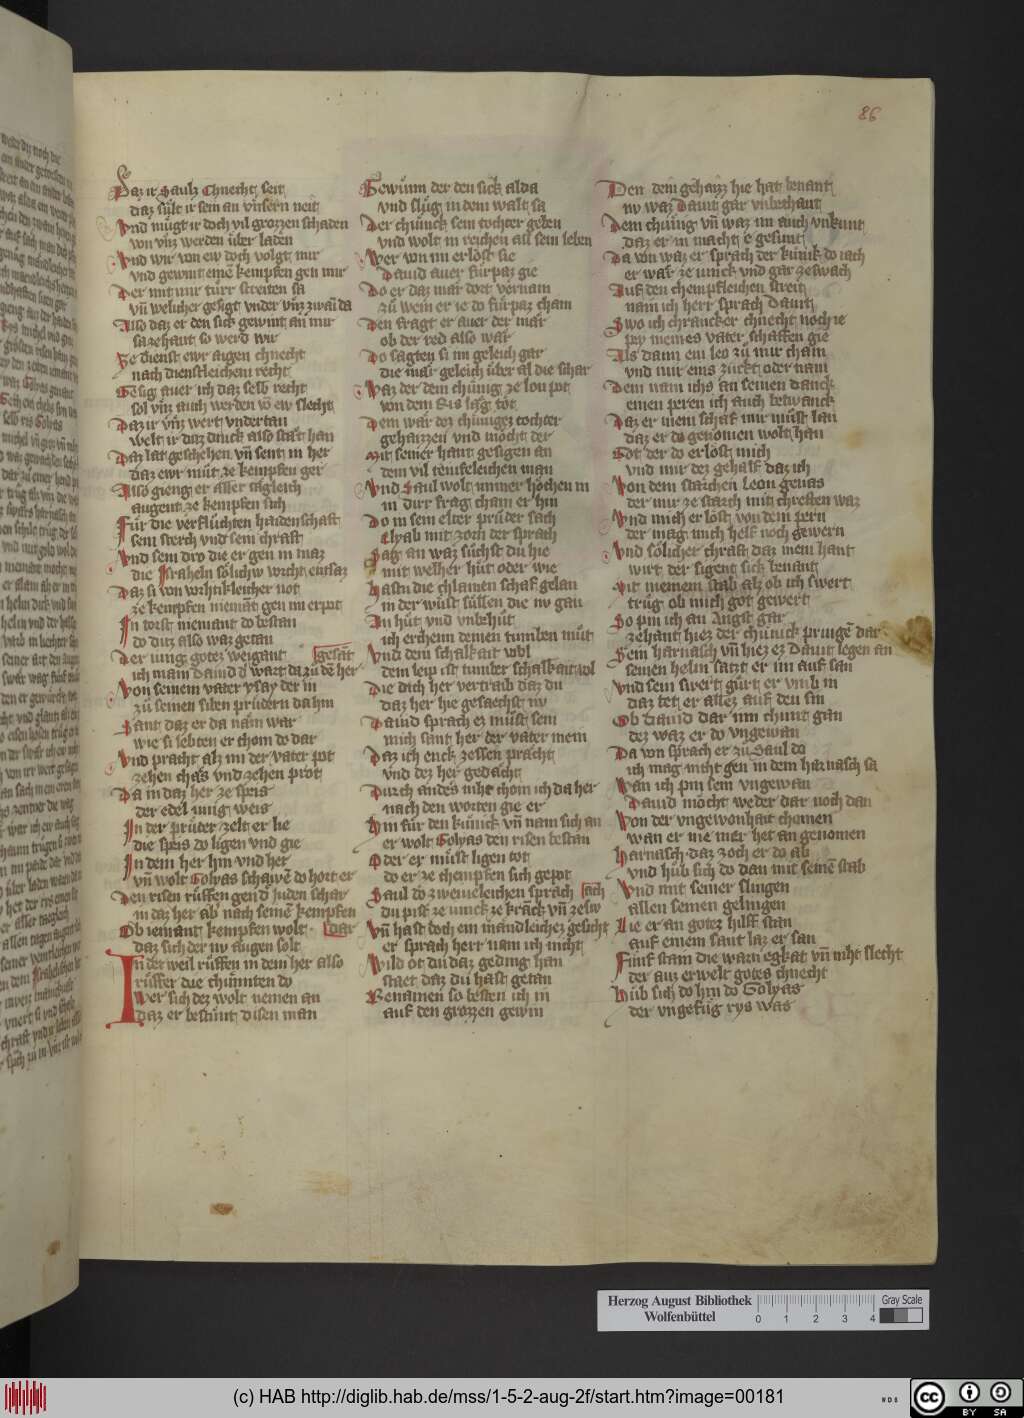 86
Daz ir Saulz Chnecht seit
daz sült ir sein an vnsern neit
Vnd mügt ir doch vil grozzen schaden
von vnz werden über laden
Vnd wir von ew doch volgt mir
vnd gewint eine kempfen gen mir
Der mit mir türr streiten sa
vn welicher gesigt vnder vnz zwain da
Also daz er den sick gewint an mir
sa zehant so werd wir
Ze dienst ewr aigen chnecht
nach dienstleichem recht
Gesig auer ich daz selb recht
sol vnz auch werden vo ew slecht
Daz ir vnz wert vndertan
welt ir daz dinck also stat han
Daz lat geschehen vn sent in her
daz ewr müt ze kempfen ger
Also gieng er aller tägleich
augent ze kempfen sich
Für die verflüchten haidenschaft
sein sterch vnd sein chraft
Vnd sein dro die er gen in maz
die Israheln sölich vorcht entsaz
Daz si von vorchtikleicher not
ze kempfen nieman gen im erpot
In torst niemant do bestan
do ditz also waz getan
Der iung gotez weigant gesant
ich main Dauid d wart da zu de her
Von seinem vater ysay der in
zu seinen siben prüdern da hin
Sant daz er da näm war
wie si lebten er chom do dar
Vnd pracht alz im der vater pot
zehen chäs vnd zehen prot
Da in daz her ze speis
der edel iung weis
In der prüder zelt er lie
die speis do ligen vnd gie
In dem her hin vnd her
vn wolt Golyas schawe do hort er
Den risen rüffen gen d Juden schar
in daz her ab nach seine kempfen
Ob iemant kempfen wolt dar
daz sich der nv zaigen solt
In der weil rüffen in dem her also
rüffer die chunnten do
Wer sich dez wolt nemen an
daz er bestünt disen man
Gewünn der den sick alda
vnd slüg in dem walt sa
Der chünick sein tochter geben
vnd wolt in reichen all sein leben
Wer von im erlost sie
Dauid auer fürpaz gie
Do er daz mär dort vernam
zu wem er ie do fürpaz cham
Den fragt er auer der mär
ob der red also wär
Do sagten si im geleich gar
die mär geleich über al die schar
Waz der dem chünig ze lon pot
von dem Ris läg tot
Dem wär dez chünigez tochter
gehaizzen vnd möcht der
Mit seiner hant gesigen an
dem vil teufeleichen man
Vnd Saul wolt immer höchen in
in dirr frag cham er hin
Do in sein elter prüder sach
Elyab mit zorn der sprach
Sag an waz süchst du hie
mit welher hüt oder wie
Hastu die chlainen schaf gelan
in der wüst süllen die nv gan
In hüt vnd vnbehüt
ich erchenn deinen tumben müt
Vnd dein schalkait wol
dein leip ist tumber schalkait vol
Die dich her vertraib daz du
daz her hie gesaechst nv
Dauid sprach ez müst sein
mich sant her der vater mein
Daz ich euch zessen prächt
vnd dez her gedächt
Durch anders niht chom ich da her
nach den worten gie er
Hin für den künick vn nam sich an
er wolt Golyas den risen bestan
Oder er müst ligen tot
do er ze chempfen sich gepot
Saul do zweiueleichen sprach ach
du pist ze iunck ze kranck vn ze sw
Vn hast doch ein mändleichez gesicht
er sprach herr nain ich nicht
Wild ot du daz geding han
staet daz du hast getan
Benamen so besten ich in
auf den grozzen gewin
Den dein gehaizz hie hat benant
nv waz Dauit gar vnbechant
Dem chünig vn waz im auch vnkunt
daz er in macht e gesunt
Da von waz er sprach der künik do iach
er wär ze iunck vnd gar ze swach
Auf den chempfleichen streit
nain ich herr sprach Dauit
Swo ich chrancker chnecht noch ie
pey meines vater schaffen gie
Als dann ein leo zu mir cham
vnd mir eins zuckt oder nam
Dem nam ichs an seinen danck
einen peren ich auch betwanck
Daz er mein schaf mir müst lan
daz er do genomen wolt han
Got der do erlost mich
vnd mir dez gehalf daz ich
Von dem starchen leon genas
der mir ze starch mit chreften waz
Vnd mich er lost von dem pern
der mag mich helf noch gewern
Vnd sölicher chraft daz mein hant
wirt der sigent sick benant
Mit meinem stab alz ob ich swert
trüg ob mich got gewert
So pin ich an Angst gar
zehant hiez der chünick pringe dar
Sein harnasch vn hiez ez Dauit legen an
seinen helm satzt er im auf san
Vnd sein swert gürt er vmb in
daz tet er allez auf den sin
Ob Dauid dar inn chunt gan
dez waz er do vngewan
Da von sprach er zu Saul do
ich mag nicht gen in dem harnasch sa
Wan ich pin sein vngewan
Dauid mocht weder dar noch dan
Von der vngewonhait chomen
wan er nie mer het an genomen
Harnasch daz zoch er do ab
vnd hüb sich do dan mit seine stab
Vnd mit seiner slingen
allen seinen gelingen
Lie er an gotez hilff stan
auf einem sant laz er san
Fünf stain die warn egkat vn niht slecht
der auz erwelt gotes chnecht
Hüb sich do hin do Golyas
der vngefüg rys was
Herzog August Bibliothek
Wolfenbüttel
0 1 2 3 4
Gray Scale
(c) HAB http://diglib.hab.de/mss/1-5-2-aug-2f/start.htm?image=00181
WDB
cc BY SA